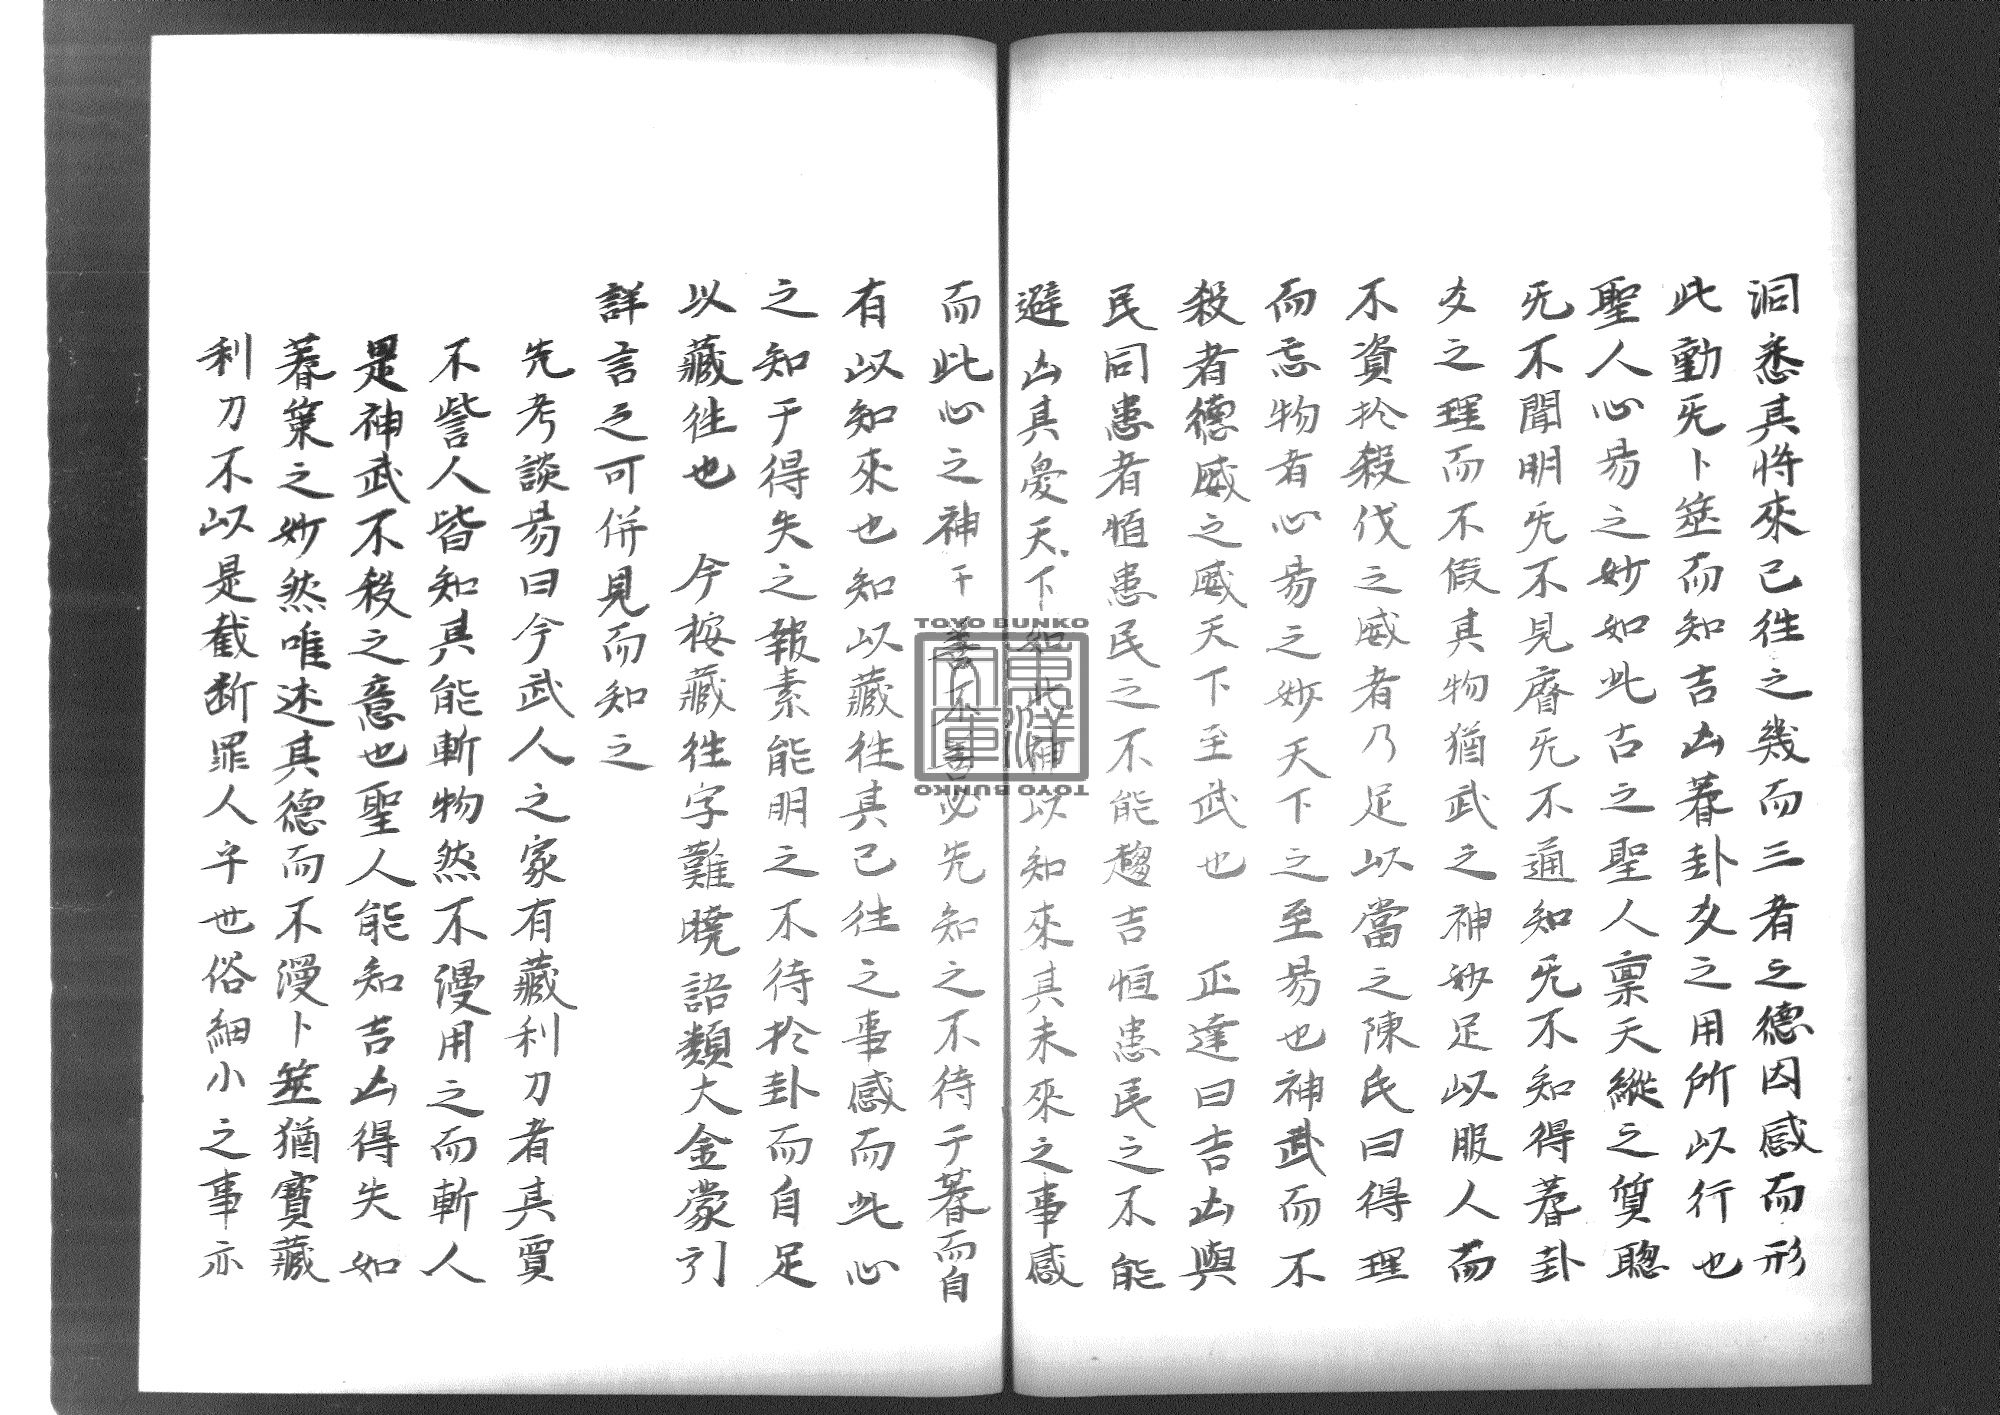 洞悉其将來已徃之幾而三者之德因感而形
此動旡卜筮而知吉凶蓍卦爻之用所以行也
聖人心易之妙如此古之聖人稟天縱之質聰
旡不聞明旡不見睿旡不通知旡不知得蓍卦
爻之理而不假其物猶武之神妙足以服人而
不資於殺伐之威者乃足以當之陳氏曰得理
而忘物者心易之妙天下之至易也神武而不
殺者德威之威天下至武也　正達曰吉凶與
民同患者恒患民之不能趨吉恒患民之不能
避凶其憂天下如此神以知來其未來之事感
而此心之神于善不善必先知之不待于蓍而自
有以知來也知以藏徃其已往之事感而此心
之知于得失之報素能明之不待於卦而自足
以藏徃也　今按藏徃字難曉語類大全蒙引
詳言之可併見而知之
先考談易曰今武人之家有藏利刀者其賈
不訾人皆知其能斬物然不漫用之而斬人
是神武不殺之意也聖人能知吉凶得失如
蓍策之妙然唯述其德而不漫卜筮猶寶藏
利刀不以是截断罪人乎世俗細小之事亦
TOYO BUNKO
東洋文庫
TOYO BUNKO